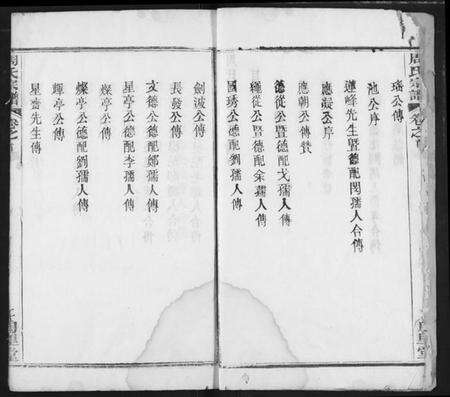 周氏宗譜 卷之
瑤公傳
池公序
蓮峰先生暨德配閔孺人合傳
應凝公序
應朝公傳贊
德從公暨德配戈孺人傳
權從公暨德配余孺人傳
國琇公德配劉孺人傳
劍波公傳
長發公傳
文德公德配鄭孺人傳
星亭公德配李孺人傳
燦亭公傳
燦亭公德配劉孺人傳
輝亭公傳
星齋先生傳
周氏宗譜 卷之首